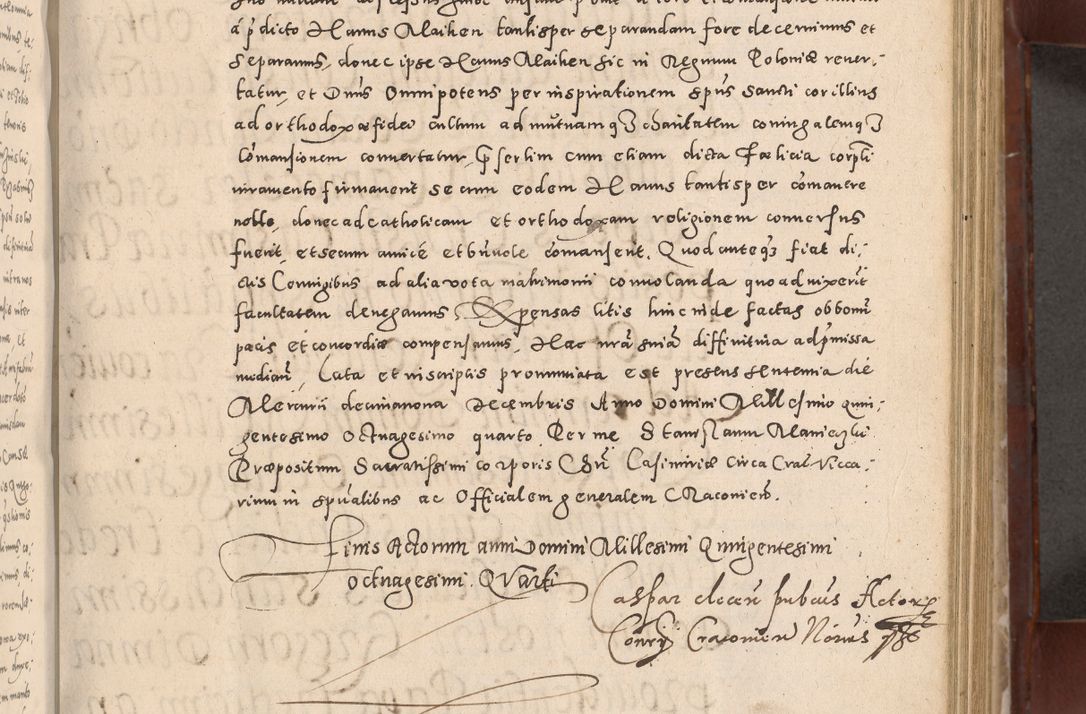 á p̃dicto Hanus Maiken tantisper separandam fore decernimus et
separamus, donec ipse Hanus Maiken sic in Regnum Poloniæ rever-
tatur, et Dnūs Omnipotens per inspirationem spūs Sancti cor illius
ad orthodoxæ fidei cultum ad mutuamqȝ charitatem coniugalemqȝ
comansionem convertatur, p̃sertim cum etiam dicta Fælicia corpli
iuramento firmaverit se cum eodem Hanus tantisper cōmanere
nolle, donec ad catholicam et orthodoxam religionem conversus
fuerit, et secum amicè et bn̄vole cōmanserit. Quod anteqȝ fiat di-
ctis Coniugibus ad alia vota matrimonii convolanda quoad vixerīt
facultatem denegamus, Expensas litis hinc inde factas ob bonū
pacis et concordiæ compensamus, Hac nrā sniā diffinitiva ad p̃missa
mediañ, Lata et in scriptis pronunciata est presens sententia diē
Mercurii decimanona Decembris Anno Domini Millesimo quin-
gentesimo Octuagesimo quarto Per me Stanislaum Manieczki
Præpositum Sacratissimi corporis Chrī Casimiriæ circa Crac. Vicca-
rium in spūalibus ac Officialem generalem Cracovieñ.
Finis Actorum anni Domini Millesimi Quingentesimi
octuagesimi Quarti
Caspar clecen publicus Actorȝ
Coñrij Cracovieñ Notarius ssȝ